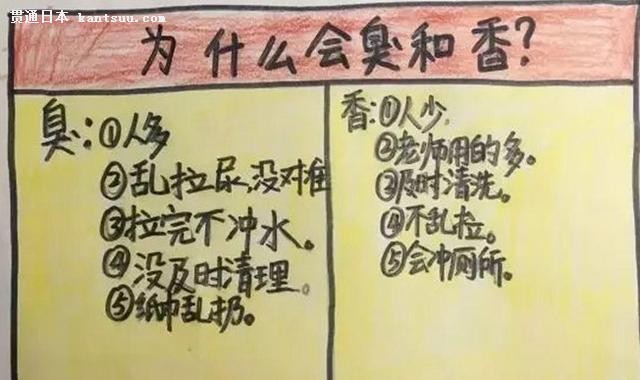 贯通日本 kantsuu.com
为什么会臭和香?
臭:①人多
②乱拉尿,没对准
③拉完不冲水。
④没及时清理。
⑤纸巾乱扔。
香:①人少.
②老师用的多。
③及时清洗。
④不乱拉。
⑤会冲厕所。